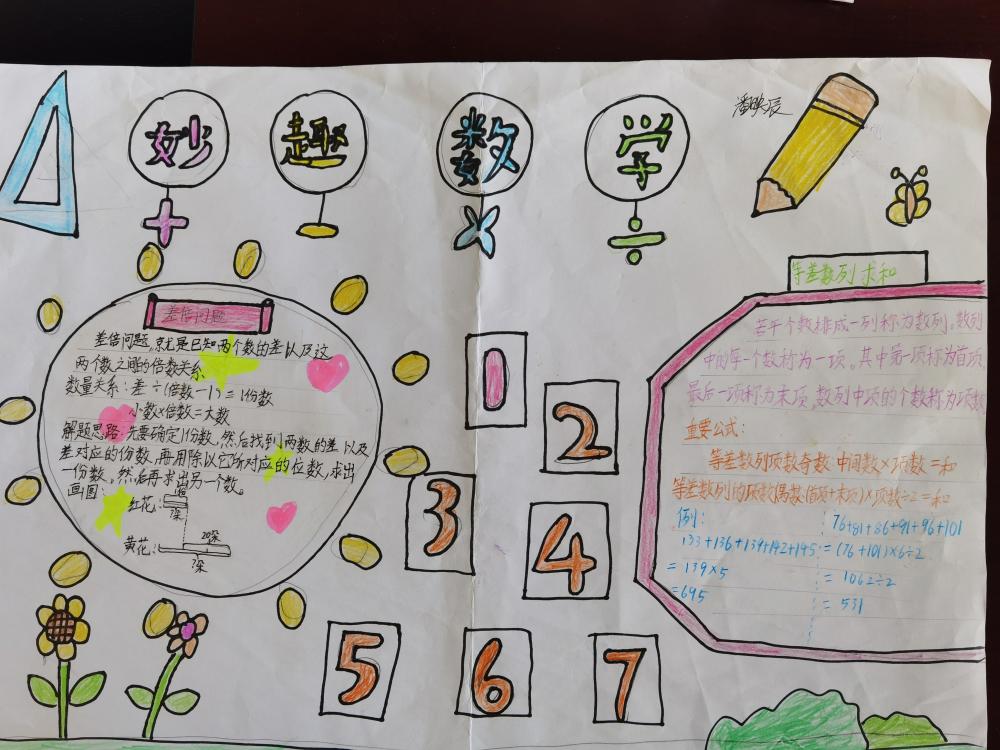 妙趣数学
潘映辰
差倍问题
差倍问题,就是已知两个数的差以及这
两个数之间的倍数关系
数量关系:差÷(倍数-1)=1份数
小数×倍数=大数
解题思路:先要确定1份数,然后找到两数的差以及
差对应的份数,再用除以它所对应的位数,求出
一份数,然后再求出另一个数。
画图:
红花:
?朵
黄花:
20朵
?朵
1
2
3
4
5
6
7
等差数列求和
若干个数排成一列称为数列。数列
中的每一个数称为一项。其中第一项称为首项
最后一项称为末项,数列中项的个数称为项数
重要公式:
等差数列项数奇数:中间数×项数=和
等差数列的项数偶数(首项+末项)×项数÷2=和
例:
133+136+139+142+145
=139×5
=695
76+81+86+91+96+101
=(76+101)×6÷2
=1062÷2
=531